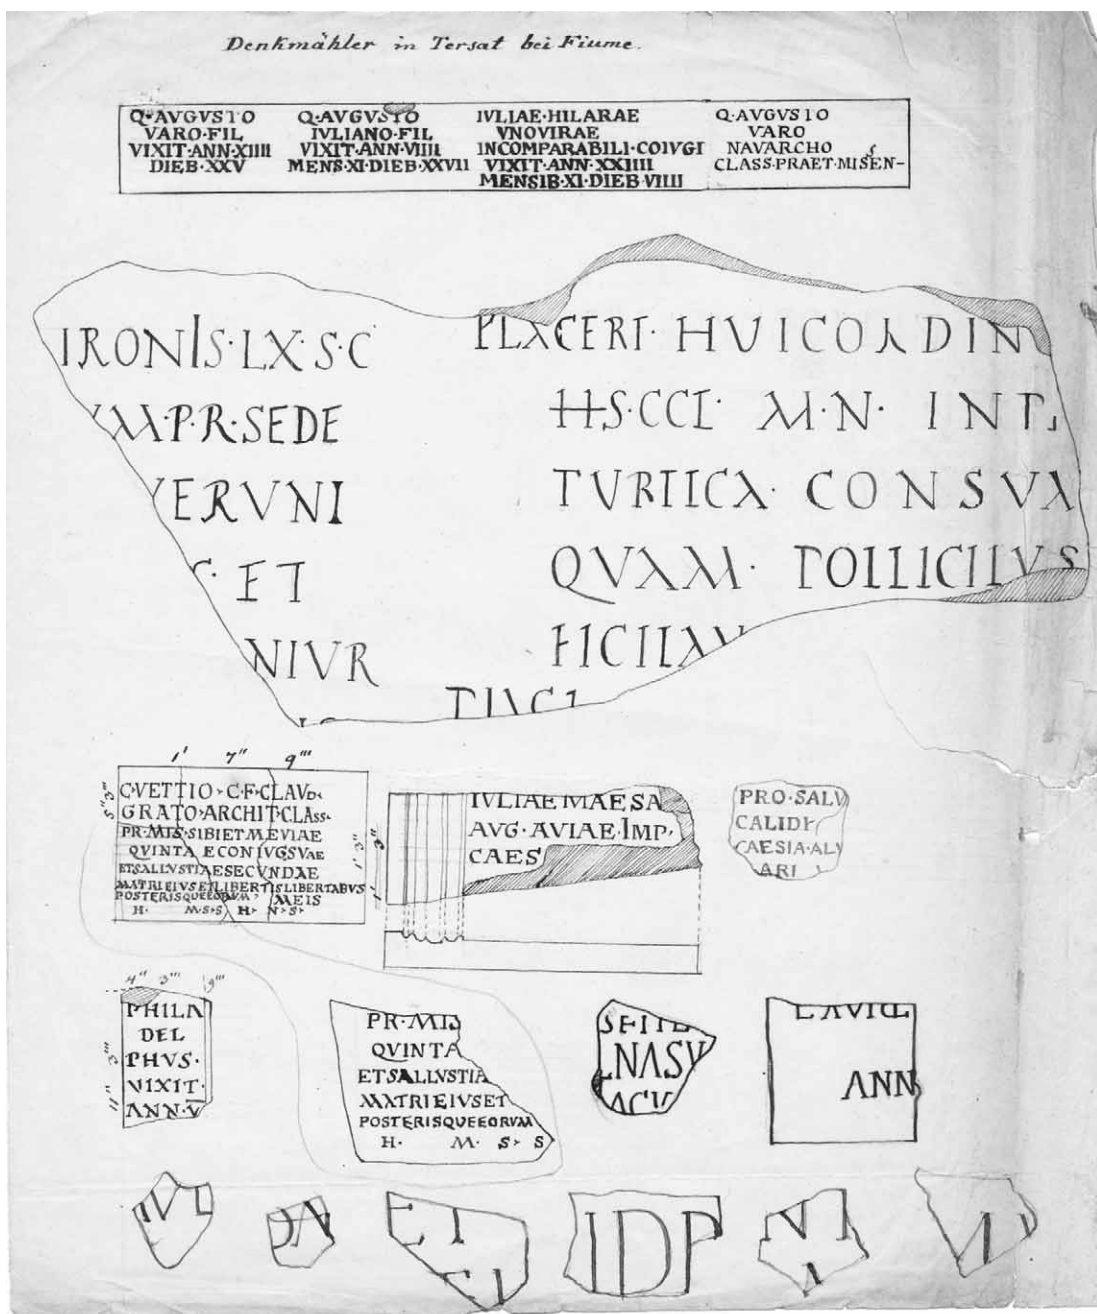 Denkmähler in Tersat bei Fiume.
Q·AVGVSTO
VARO·FIL
VIXIT·ANN·XIIII
DIEB·XXV
Q·AVGVSTO
IVLIANO·FIL
VIXIT·ANN·VIIII
MENS·XI·DIEB·XXVII
IVLIAE·HILARAE
VNOVIRAE
INCOMPARABILI·COIVGI
VIXIT·ANN·XXIIII
MENSIB·XI·DIEB·VIIII
Q·AVGVSTO
VARO
NAVARCHO
CLASS·PRAET·MISEN-
IRONIS·LX·S·C
VM·P·R·SEDE
VERVNI
C·ET
NIVR
PLACERI· HVICORDIN
HS·CCL M·N· INT
TVRTICA· CONSVA
QVAM· POLLICILVS
FICILAV
1' 7" 9'''
5" 3'''
C·VETTIO·C·F·CLAVD·
GRATO·ARCHIT·CLAss·
PR·MIS·SIBIETMEVIAE
QVINTAECONIVGSVAE
ETSALLVSTIAESECVNDAE
MATRIEIVSETLIBERTISLIBERTABVS
POSTERISQVEEORVM· MEIS
H· M·S·S H· N·S·
1' 3"
IVLIAE MAESA
AVG·AVIAE IMP·
CAES
PRO·SALV
CALIDI
CAESIA·AL
ARI
4" 3''' 9'''
11" 3'''
PHILA
DEL
PHVS·
VIXIT·
ANN·V
PR·MIS
QVINTA
ETSALLVSTIA
MATRIEIVSET
POSTERISQVEEORVM
H· M· S· S
SEITE
LNASV
ACV
ANN
IVL
ET
IDP
NI